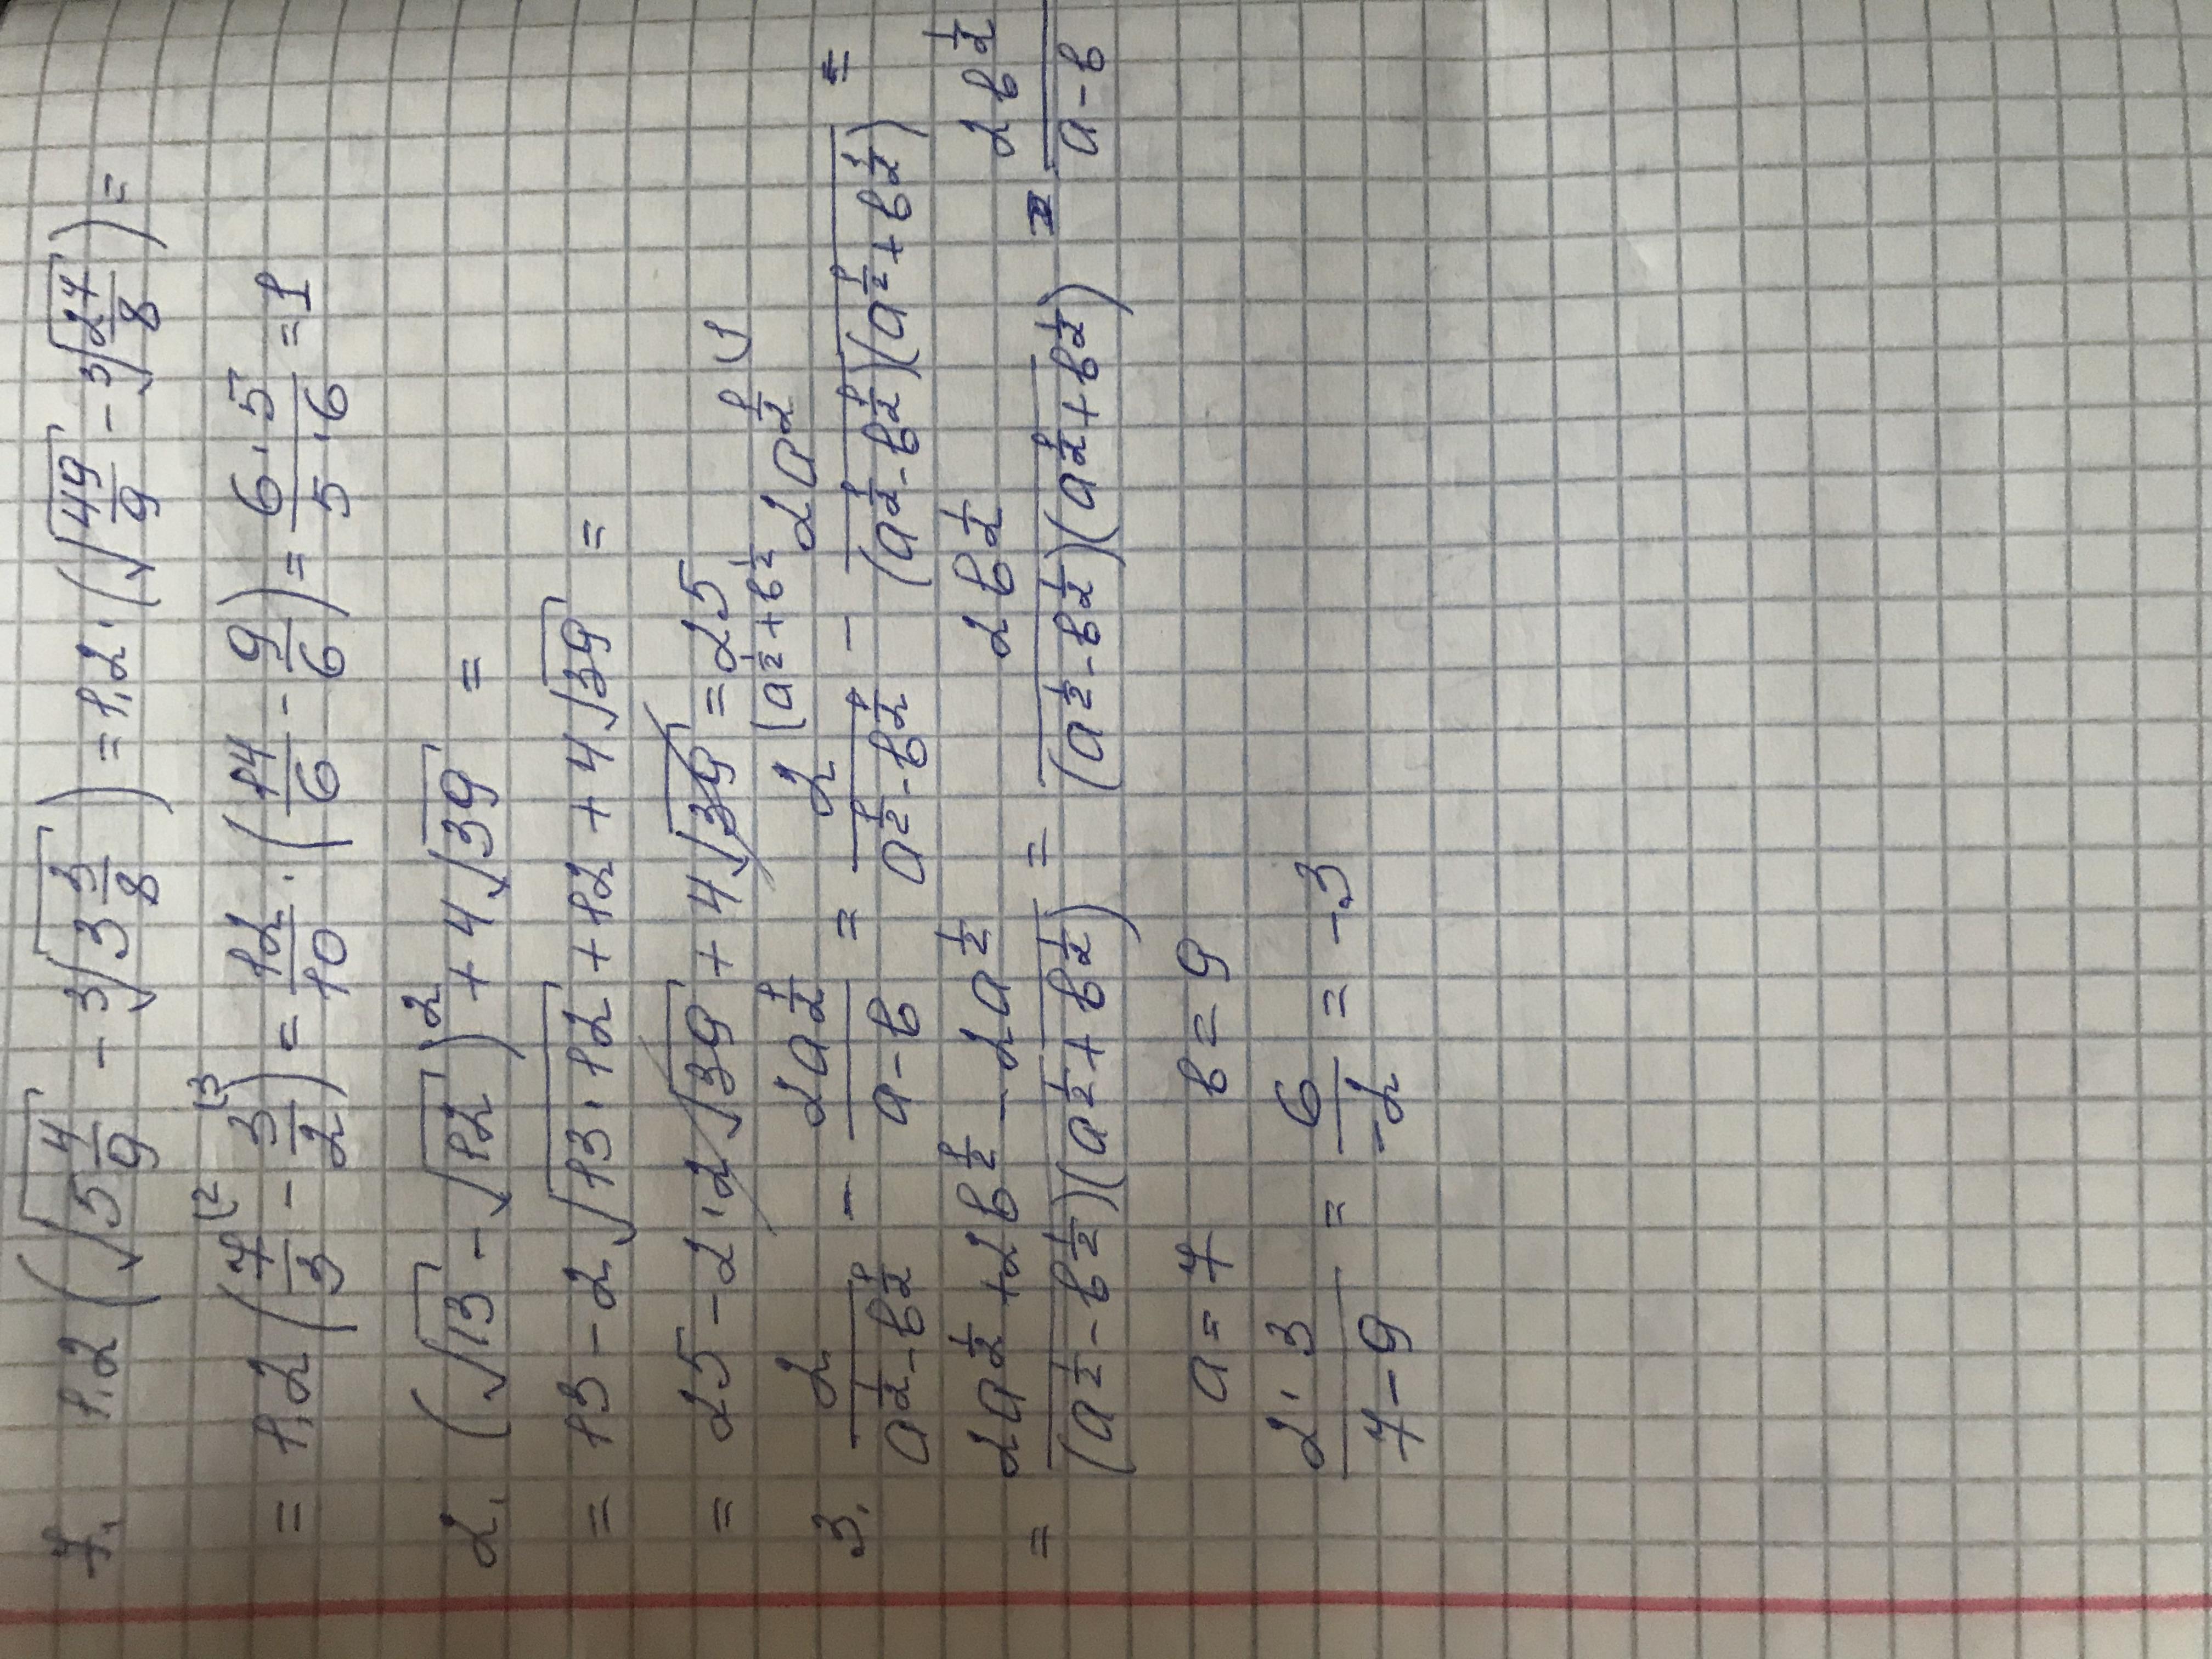 7. 1,2 (√(5 4/9) - ³√(3 3/8)) = 1,2 · (√(49/9) - ³√(27/8)) =
= 1,2 (7/3⁽² - 3/2⁽³) = 12/10 · (14/6 - 9/6) = 6·5/5·6 = 1
2. (√13 - √12)² + 4√39 =
= 13 - 2√(13·12) + 12 + 4√39 =
= 25 - 2·2√39 + 4√39 = 25
3. 2/(a^(1/2) - b^(1/2)) - 2a^(1/2)/(a - b) = 2 (a^(1/2) + b^(1/2)/(a^(1/2) - b^(1/2)) - 2a^(1/2) (1/((a^(1/2) - b^(1/2))(a^(1/2) + b^(1/2))) =
= (2a^(1/2) + 2b^(1/2) - 2a^(1/2))/((a^(1/2) - b^(1/2))(a^(1/2) + b^(1/2))) = 2b^(1/2)/((a^(1/2) - b^(1/2))(a^(1/2) + b^(1/2))) = 2b^(1/2)/(a - b)
a = 7 b = 9
2·3/(7 - 9) = 6/-2 = -3